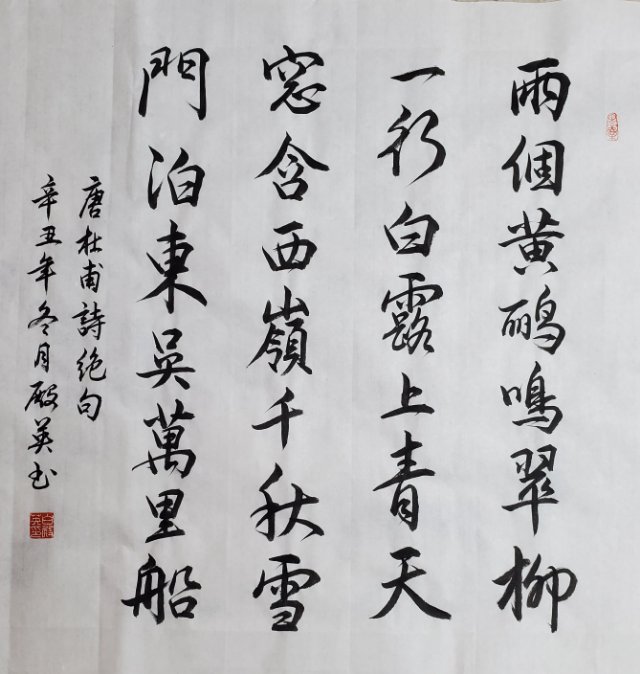 兩個黄鸝鳴翠柳
一行白露上青天
窓含西嶺千秋雪
門泊東吳萬里船
唐杜甫詩絶句
辛丑年冬月殿英书